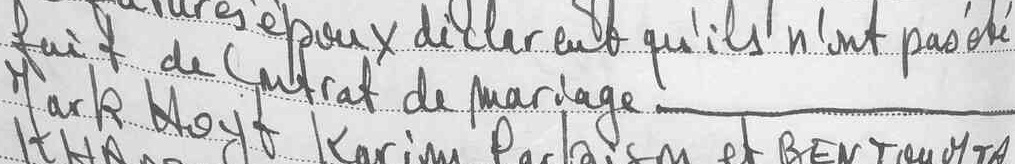 époux déclarent qu'ils n'ont pas été
fait de Contrat de mariage
Mark Hoyt Karim et BEN